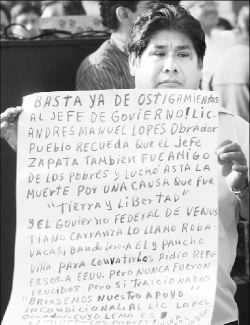 BASTA YA DE OSTIGAMIENTOS
AL JEFE DE GOVIERNO! Lic.
ANDRES MANUEL LOPES Obrador
PUEBLO RECUEDA QUE EL JEFE
ZAPATA TAMBIEN FUE AMIGO
DE LOS POBRES Y LUCHÓ ASTA LA
MUERTE POR UNA CAUSA QUE FUE
"TIERRA y LIBERTAD"
y EL GOVIERNO FEDERAL DE VENUS
TIANO CARRANZA LO LLAMO ROBA-
VACAS, BANDOLERO A EL y PANCHO
VILLA PARA COMVATIRLOS PIDIO REFU-
ERSOS A EEUU. PERO NUNCA FUERON
VENCIDOS PERO SI TRAICIONADOS
"BRINDEMOS NUESTRO APOYO
INCONDICIONAL AL LIC LOPES
OBRADOR CUYO LEMA ES
POBRES